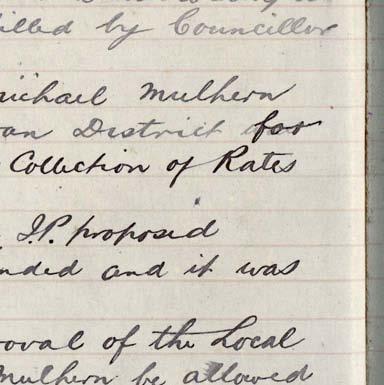 illed by Councillor
michael Mulhern
an District for
Collection of Rates
J.P. proposed
nded and it was
oval of the Local
Mulhern be allowed